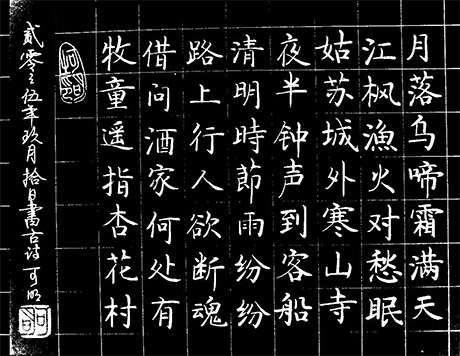 月落乌啼霜满天
江枫漁火对愁眠
姑苏城外寒山寺
夜半钟声到客船
清明時節雨纷纷
路上行人欲断魂
借问酒家何处有
牧童遥指杏花村
貳零々伍年玖月拾日書古诗可明